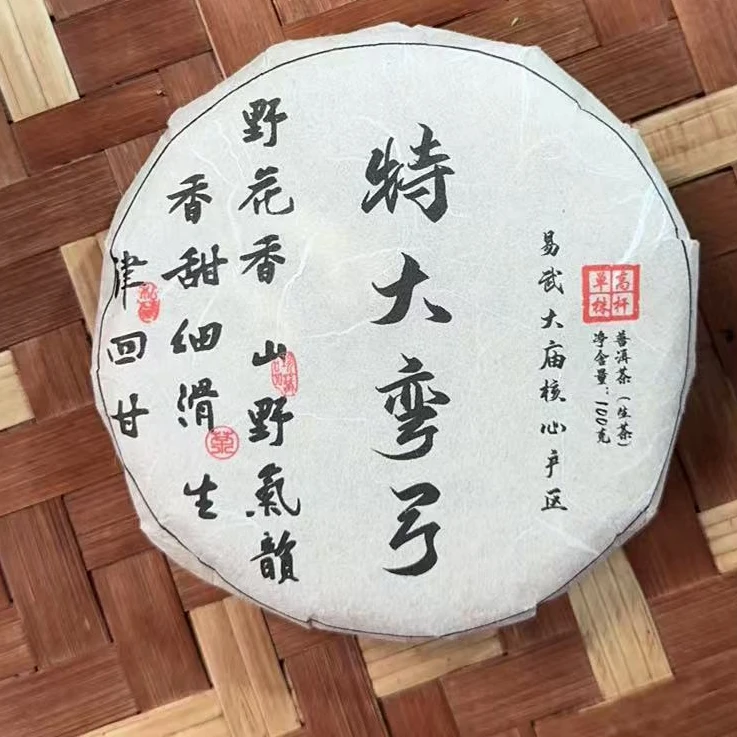 高杆单株
普洱茶（生茶）
净含量：100克
易武大庙核心产区
特大弯弓
野花香 山野氣韻
香甜细滑 生
津回甘
茶